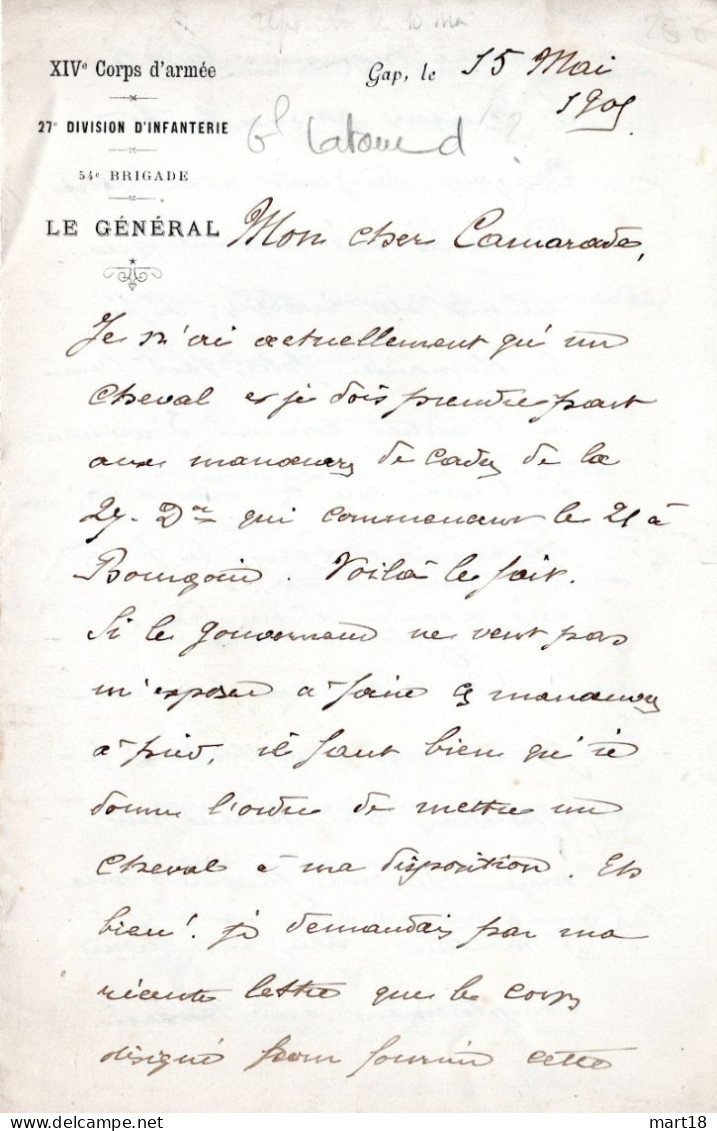 réponse le 16 Mai
XIVe Corps d'armée
Gap, le 15 Mai
1905
27e DIVISION D'INFANTERIE
Gl
54e BRIGADE
LE GÉNÉRAL
Mon cher Camarade,
Je n'ai actuellement qu'un
cheval et je dois prendre part
aux manœuvres de cadres de la
27e Don qui commencent le 21 à
Bourgoin. Voilà le fait.
Si le Gouverneur ne veut pas
m'exposer à faire ces manœuvres
à pied, il faut bien qu'il
donne l'ordre de mettre un
cheval à ma disposition. Eh
bien! je demandais par ma
récente lettre que le corps
désigné pour fournir cette
mart18